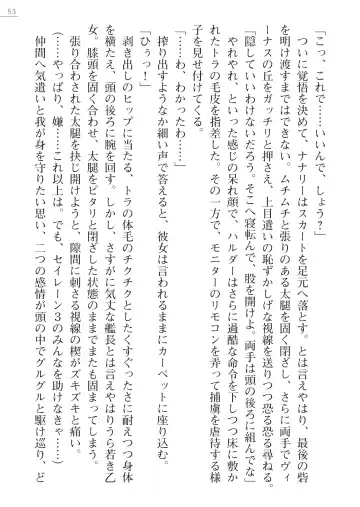 53
「こっ、これで……いいんで、しょう？」
　ついに覚悟を決めて、ナナリーはスカートを足元へ落とす。とは言えやはり、最後の砦
を明け渡すまではできない。ムチムチと張りのある太腿を固く閉ざし、さらに両手でヴィ
ーナスの丘をガッチリと押さえ、上目遣いの恥ずかしげな視線を送りつつ恐る恐る尋ねる。
『隠していいわけないだろう。そこへ寝転んで、股を開けよ。両手は頭の後ろに組んでな』
　やれやれ、といった感じの呆れ顔で、ハルダーはさらに過酷な命令を下しつつ床に敷か
れたトラの毛皮を指差した。その一方で、モニターのリモコンを弄って捕虜を虐待する様
子を見せ付けてくる。
「……わ、わかったわ……」
　搾り出すようなか細い声で答えると、彼女は言われるままにカーペットに座り込む。
「ひぅっ！」
　剥き出しのヒップに当たる、トラの体毛のチクチクとしたくすぐったさに耐えつつ身体
を横たえ、頭の後ろに腕を回す。しかし、さすがに気丈な艦長とは言えやはりうら若き乙
女。膝頭を固く合わせ、太腿をピタリと閉ざした状態のままでまたも固まってしまう。
　張り合わされた太腿を抉じ開けようと、隙間に刺さる視線の楔がズキズキと痛い。
（……やっぱり、嫌……これ以上は。でも、セイレーン３のみんなを助けなきゃ……）
　仲間へ気遣いと我が身を守りたい思い、二つの感情が頭の中でグルグルと駆け巡り、ど